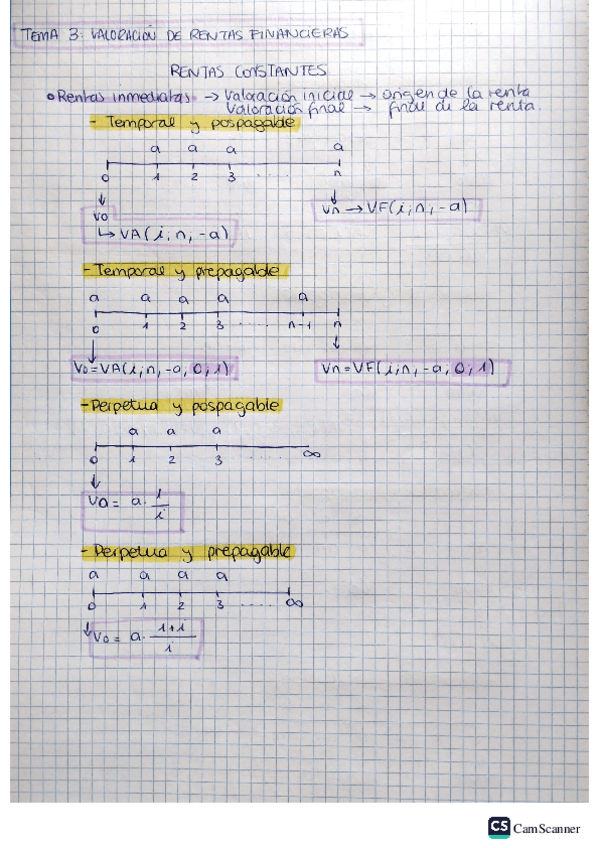 TEMA 3: VALORACIÓN DE RENTAS FINANCIERAS
RENTAS CONSTANTES
Rentas inmediatas → Valoración inicial → origen de la renta
Valoración final → final de la renta.
- Temporal y pospagable
a a a a
0 1 2 3 .... n
V0
↳ VA(i; n; -a)
Vn → VF(i; n; -a)
- Temporal y prepagable
a a a a a
0 1 2 3 .... n-1 n
V0 = VA(i; n; -a; 0; 1)
Vn = VF(i; n; -a; 0; 1)
- Perpetua y pospagable
a a a
0 1 2 3 .... ∞
V0 = a · 1/i
- Perpetua y prepagable
a a a a
0 1 2 3 .... ∞
V0 = a · 1+i/i
CS CamScanner